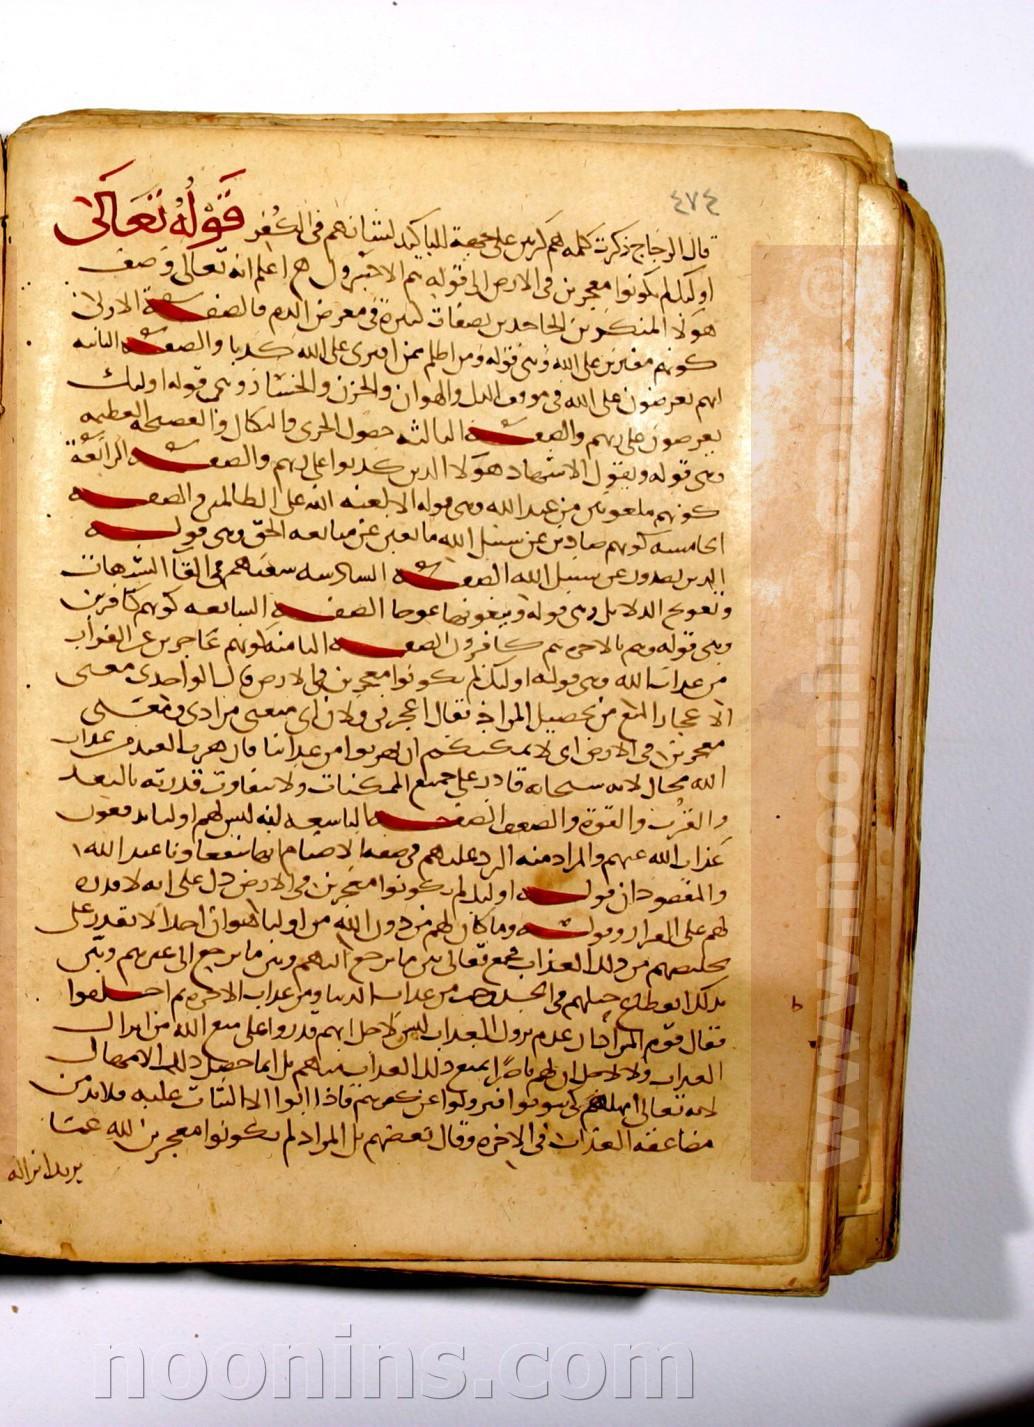 ٤٧٤
قال الزجاج ذكرت كلمة هم كرتين على جهة للتاكيد لشانهم فى الكفر قَوْلُهُ تَعَالَى
اوليك لم يكونوا معجزين فى الارض الى قوله هم الاخسرون اعلم انه تعالى وصف
هولا المنكرين الجاحدين بصفات كثيرة فى معرض الذم فالصفة الاولى
كونهم مفترين على الله وهى قوله ومن اظلم ممن افترى على الله كذبا والصفة الثانيه
انهم يعرضون على الله فى موقف الذل والهوان والخزى والخسار وهى قوله اوليك
يعرضون على ربهم والصفة الثالثه حصول الخزى والنكال والفضيحة العظيمه
وهى قوله ويقول الاشهاد هولا الذين كذبوا على ربهم والصفة الرابعة
كونهم ملعونين من عند الله وهى قوله الا لعنة الله على الظالمين والصفة
الخامسه كونهم صادين عن سبيل الله مانعين عن متابعة الحق وهى قوله
الذين يصدون عن سبيل الله الصفة السادسه سعيهم فى القا الشبهات
وتعويج الدلايل وهى قوله ويبغونها عوجا الصفة السابعه كونهم كافرين
وهى قوله وهم بالاخره هم كافرون الصفة الثامنه كونهم عاجزين عن الفرار
من عذاب الله وهى قوله اوليك لم يكونوا معجزين فى الارض قال الواحدى معنى
الاعجاز المنع من تحصيل المراد يقال اعجزنى فلان اى منعنى مرادى ومعنى
معجزين فى الارض اى لا يمكنهم ان يهربوا من عذابنا فان هرب العبد من عذاب
الله محال لانه سبحانه قادر على جميع الممكنات ولا يتفاوت قدرته بالبعد
والقرب والقوة والضعف الصفة التاسعه انه ليس لهم اوليا يدفعون
عذاب الله عنهم والمراد منه الرد عليهم فى وصفهم الاصنام بانها شفعاونا عند الله
والمقصود ان قوله اوليك لم يكونوا معجزين فى الارض دل على انه لا قدرة
لهم على الفرار وقوله وما كان لهم من دون الله من اوليا هو ان احدا لا يقدر على
تخليصهم من ذلك العذاب فجمع تعالى بين ما يرجع اليهم وبين ما يرجع الى غيرهم وبين
بذلك انقطاع حيلهم فى الخلاص من عذاب الدنيا ومن عذاب الاخره ثم اختلفوا
فقال قوم المراد ان عدم نزول العذاب ليس لاجل انهم قدروا على منع الله من انزال
العذاب ولا لاجل ان لهم ناصرا يمنع ذلك العذاب عنهم بل انما حصل ذلك الامهال
لانه تعالى امهلهم كى يتوبوا فيزولوا عن كفرهم فاذا ابوا الا الثبات عليه فلا بد من
مضاعفة العذاب فى الاخره وقال بعضهم بل المراد لم يكونوا معجزين لله عما
يريد انزاله
www.noonins.com
noonins.com